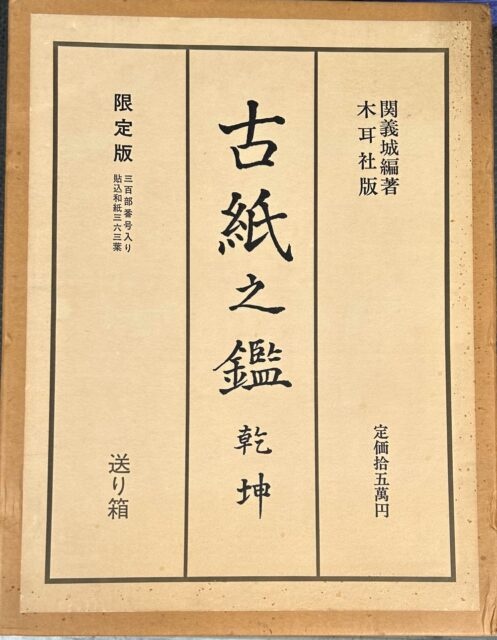 関義城編著
木耳社版
定価拾五萬円
古紙之鑑 乾坤
限定版
三百部番号入り
貼込和紙三六三葉
送り箱